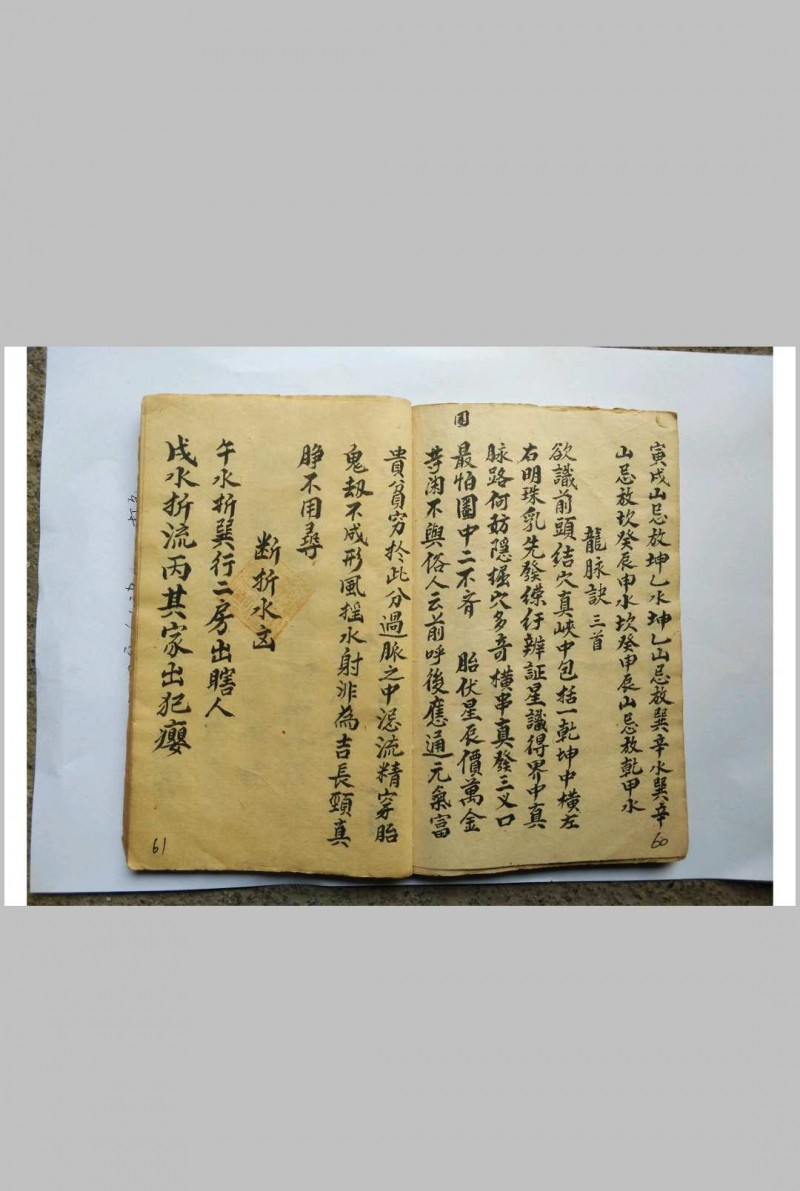 寅戌山忌放坤乙水坤乙山忌放巽辛水巽辛
山忌放坎癸辰申水坎癸申辰山忌放乾甲水
龍脉訣 三首
欲識前頭結穴真峽中包括一乾坤中橫左
右明珠乳先發傑行辨証星識得界中真
脉路何妨隱掘穴多奇橫串真發三叉口
最怕圖中二不齊 胎伏星辰價萬金
等閑不與俗人云前呼後應通元氣富
圖
60
貴貧窮於此分過脈之中忌流精穿胎
鬼刼不成形風搖水射非為吉長頸真
睁不用尋
断折水凶
午水折巽行二房出瞎人
戌水折流丙其家出犯癭
61